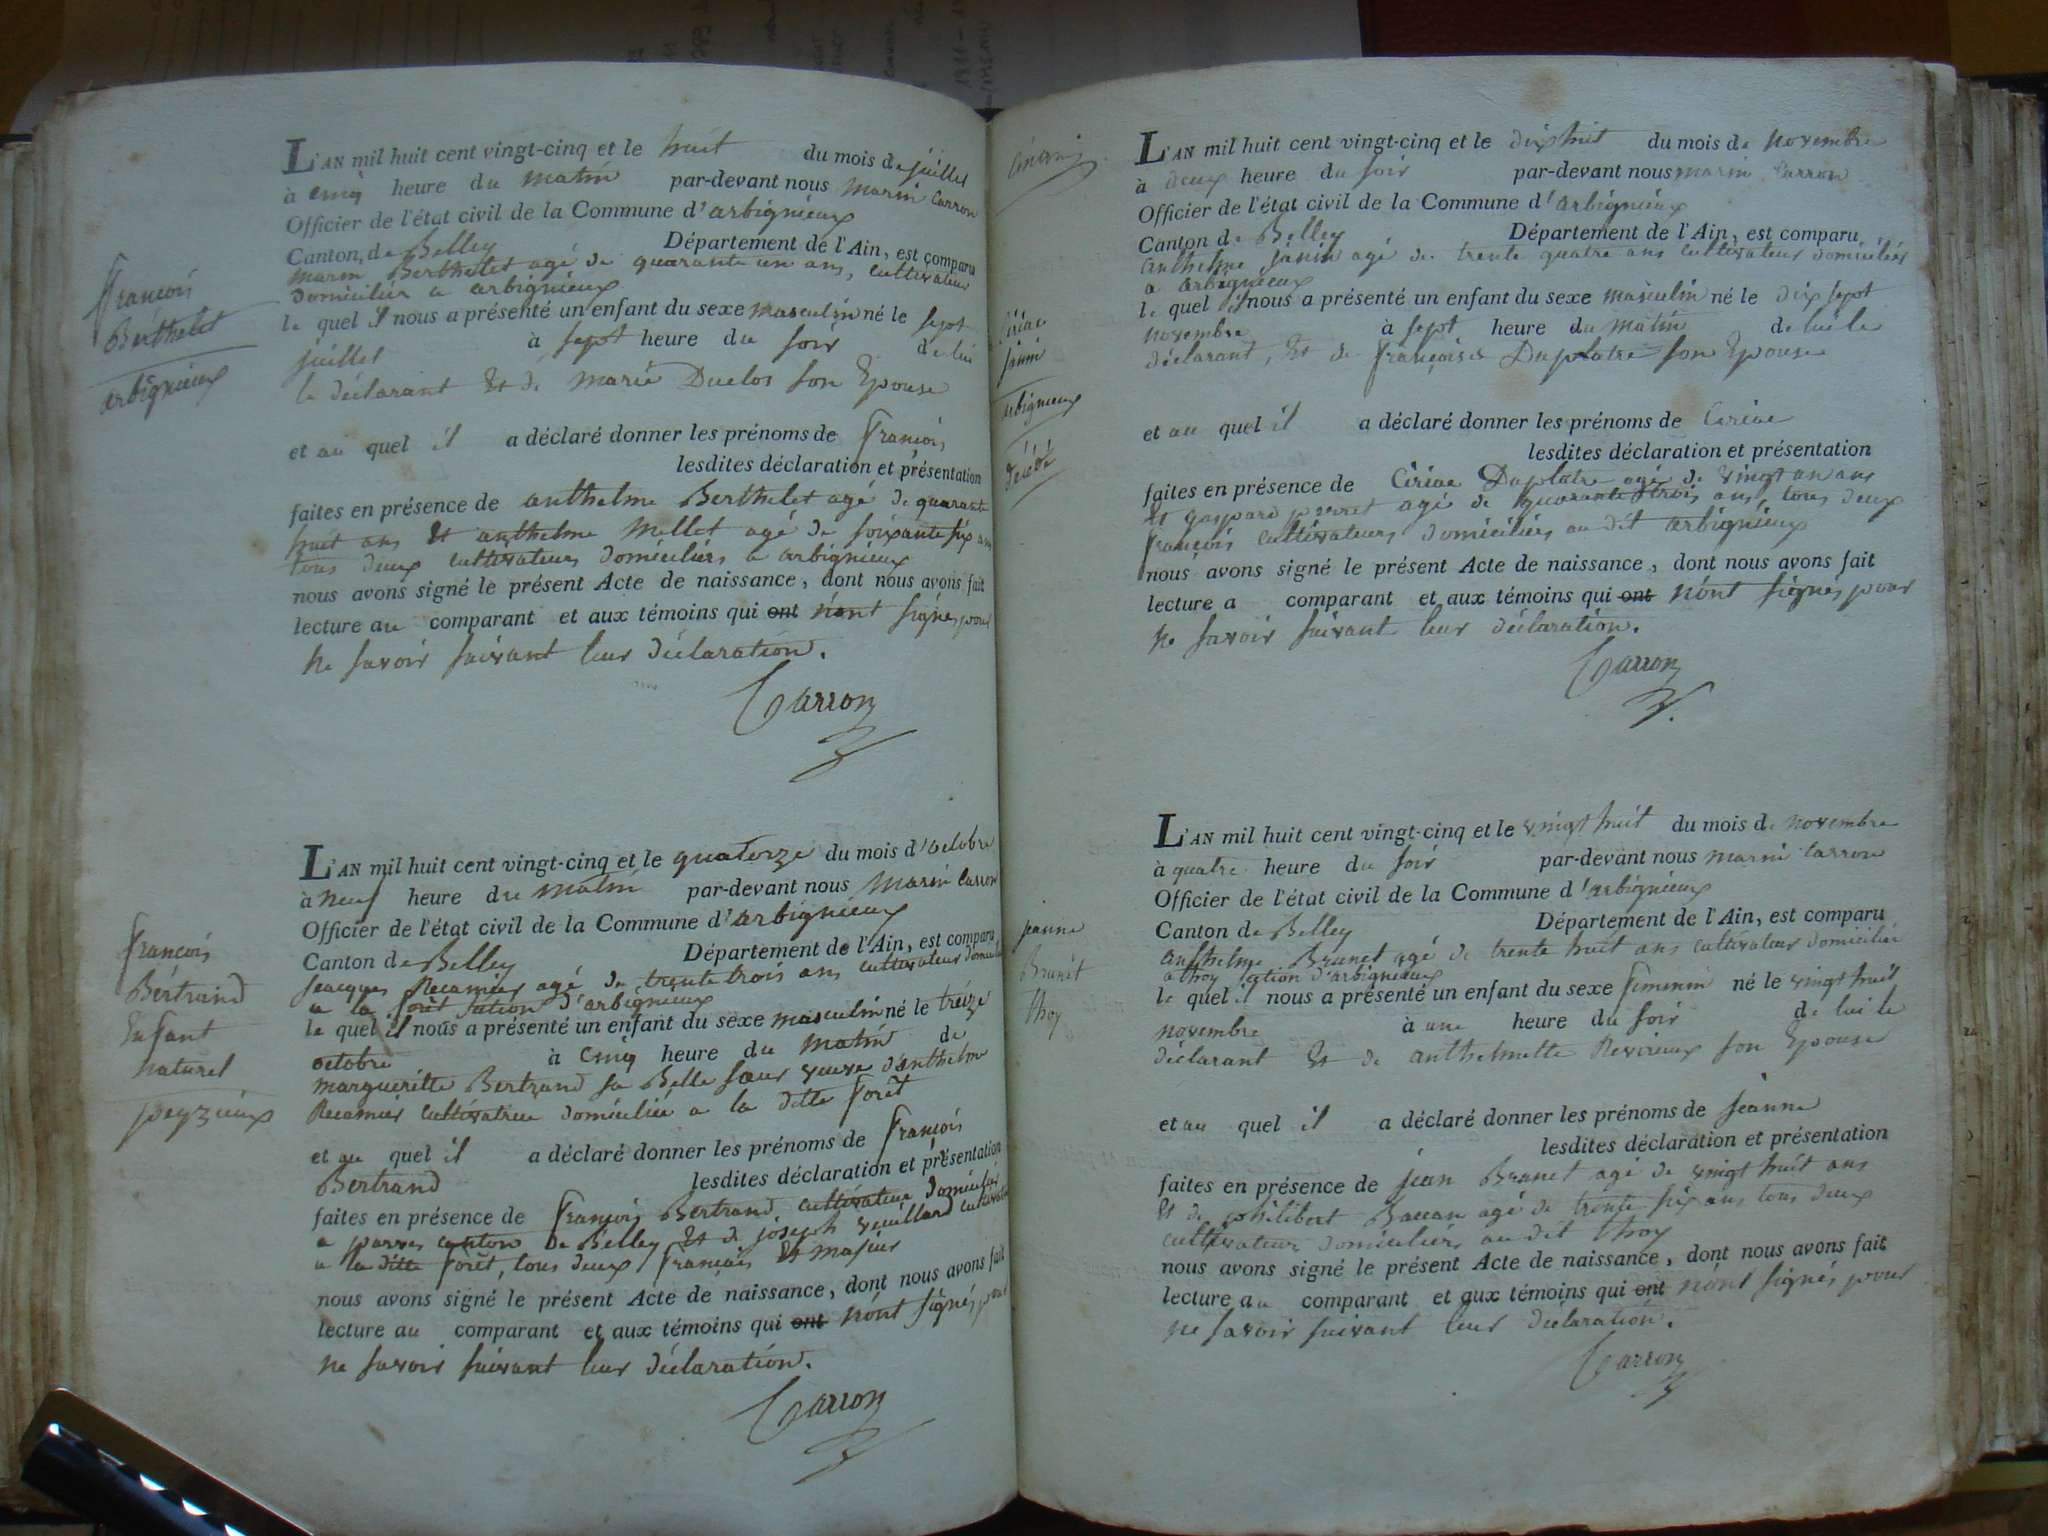 François
Berthelet
arbignieux
L'AN mil huit cent vingt-cinq et le huit du mois de juillet
à cinq heure du matin par-devant nous marin Carron
Officier de l'état civil de la Commune d'arbignieux
Canton de Belley Département de l'Ain, est comparu
marin Berthelet agé de quarante un ans, cultivateur
domicilier a arbignieux
le quel il nous a présenté un enfant du sexe masculin né le sept
juillet à sept heure du soir de lui
le déclarant Et de marie Duclos son Epouse
et au quel il a déclaré donner les prénoms de François
lesdites déclaration et présentation
faites en présence de anthelme Berthelet agé de quarante
huit ans Et anthelme Mellet agé de soixante six ans
tous deux cultivateurs domiciliers a arbignieux
nous avons signé le présent Acte de naissance, dont nous avons fait
lecture au comparant et aux témoins qui ont n'ont signés pour
ne savoir suivant leur déclaration.
Carron
François
Bertrand
Enfant
naturel
peyzieux
L'AN mil huit cent vingt-cinq et le quatorze du mois d'octobre
à neuf heure du matin par-devant nous Marin Carron
Officier de l'état civil de la Commune d'arbignieux
Canton de Belley Département de l'Ain, est comparu
jeacques Recamier agé de trente trois ans cultivateur domicilié
a la forêt section d'arbignieux
le quel il nous a présenté un enfant du sexe masculin né le treize
octobre à cinq heure du matin de
margueritte Bertrand sa Belle sœur veuve d'anthelme
Recamier cultivatrice domiciliée a la ditte forêt
et au quel il a déclaré donner les prénoms de François
Bertrand lesdites déclaration et présentation
faites en présence de François Bertrand cultivateur domicilié
a parves canton de Belley Et de joseph veuillard cultivateur
a la ditte forêt, tous deux français Et majeur
nous avons signé le présent Acte de naissance, dont nous avons fait
lecture au comparant et aux témoins qui ont n'ont signés pour
ne savoir suivant leur déclaration.
Carron
Ciriac
janin
arbignieux
décédé
L'AN mil huit cent vingt-cinq et le dix huit du mois de novembre
à deux heure du soir par-devant nous marin Carron
Officier de l'état civil de la Commune d'arbignieux
Canton de Belley Département de l'Ain, est comparu
anthelme janin agé de trente quatre ans cultivateur domiciliés
a arbignieux
le quel il nous a présenté un enfant du sexe masculin né le dix sept
novembre à sept heure du matin de lui le
déclarant, Et de françoise Duplatre son Epouse
et au quel il a déclaré donner les prénoms de Ciriac
lesdites déclaration et présentation
faites en présence de Ciriac Duplatre agé de vingt un ans
Et gaspard perret agé de quarante trois ans, tous deux
françois cultivateurs domiciliés au dit arbignieux
nous avons signé le présent Acte de naissance, dont nous avons fait
lecture a comparant et aux témoins qui ont n'ont signés pour
ne savoir suivant leur déclaration.
Carron
jeanne
Brunet
thoy
L'AN mil huit cent vingt-cinq et le vingt huit du mois de novembre
à quatre heure du soir par-devant nous marin Carron
Officier de l'état civil de la Commune d'arbignieux
Canton de Belley Département de l'Ain, est comparu
anthelme Brunet agé de trente huit ans cultivateur domicilié
a thoy section d'arbignieux
le quel il nous a présenté un enfant du sexe feminin né le vingt huit
novembre à une heure du soir de lui le
déclarant Et de anthelmette Revirieux son Epouse
et au quel il a déclaré donner les prénoms de jeanne
lesdites déclaration et présentation
faites en présence de jean Brunet agé de vingt huit ans
Et de philibert agé de trente six ans tous deux
cultivateurs domiciliés au dit thoy
nous avons signé le présent Acte de naissance, dont nous avons fait
lecture au comparant et aux témoins qui ont n'ont signés pour
ne savoir suivant leur déclaration.
Carron